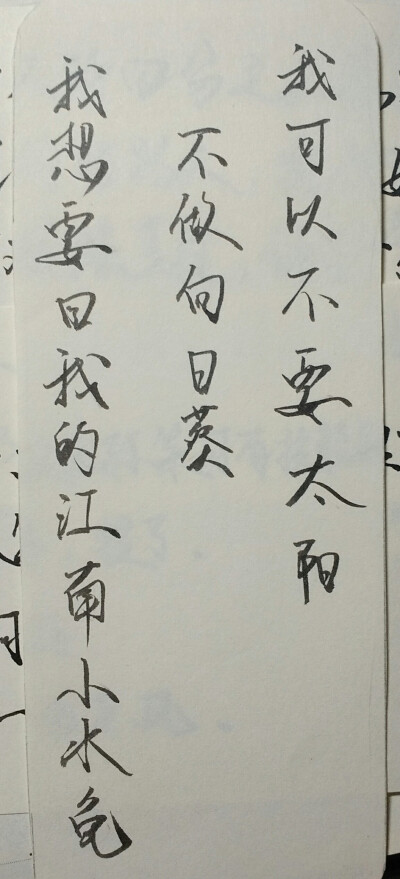 我可以不要太阳
不做向日葵
我想要曰我的江南小水龟